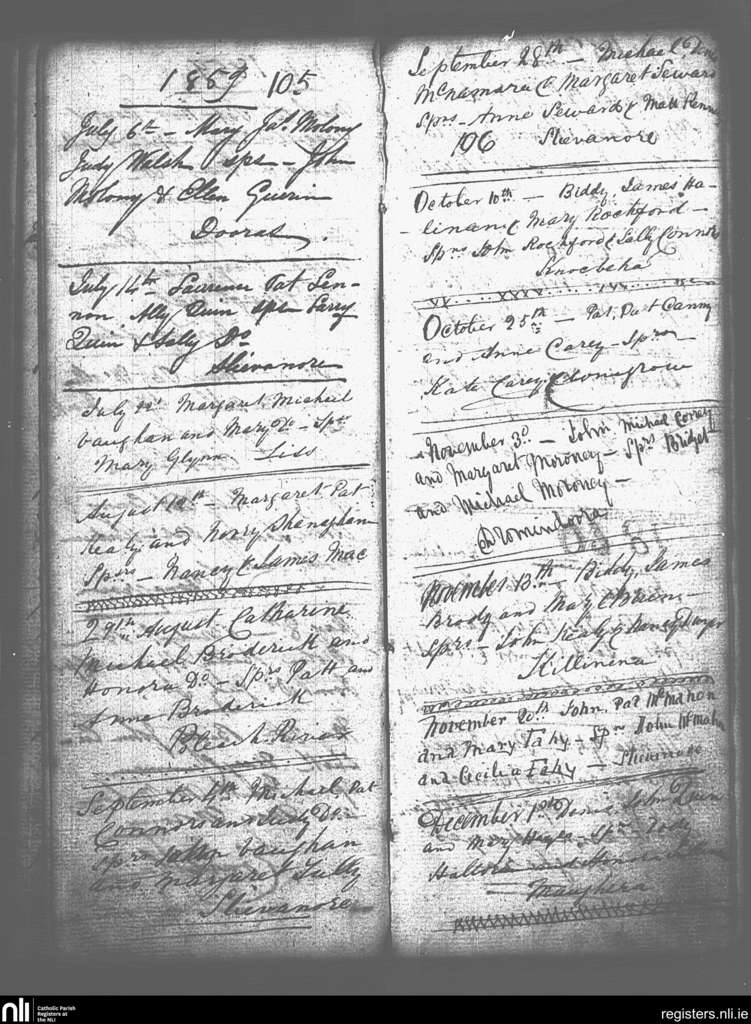 1859 105
July 6th - Mary Jas. Molony
Judy Walsh sps - John
Molony & Ellen Guerin
Dooras
July 14th Laurence Pat Len-
non Ally Quin sps Parry
Quin & Sally Do
Slievanore
July 22d Margaret Michael
Vaughan and Mary Do - Sps
Mary Glynn Liss
August 10th - Margaret Pat
Healy and Honry Shanaghan
Sprs - Nancy & James Mac
29th August Catharine
Michael Broderick and
Honora Do - Sprs Patt and
Anne Broderick
Bleach River
September 4th Michael Pat
Connors and Judy Do -
Sprs Vaughan
and Margaret Tully
Slievanore
September 28th - Michael
McNamara & Margaret Seward
Sprs - Anne Seward & Matt
106 Slievanore
October 10th - Biddy James Ha-
linan & Mary Rochford -
Sprs John Rochford & Sally Connor
October 25th - Pat, Patt Canny
and Anne Carey - Sprs
Kate Carey Clonugrow
November 3d - John Michael
and Margaret Moroney - Sprs Bridget
and Michael Moroney -
Dromindoora
November 13th - Biddy, James
Brody and Mary OBrien -
Sprs - John Healy & Nancy Dwyer
Killinena
November 20th John, Pat McMahon
and Mary Fahy - Spr John McMahn
and Cecilia Fahy -
December 1st Denis John Quin
and Mary Hayes Sprs - Tody
and
Maughera
nli Catholic Parish
Registers at
the NLI
registers.nli.ie